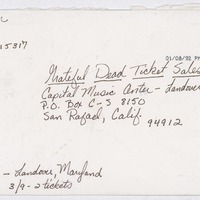 15317
01/08/92 PM
Grateful Dead Ticket Sales
Capital Music Center - Landover
P.O. Box C-S 8150
San Rafael, Calif.
94912
- Landover, Maryland
3/9 - 2 tickets